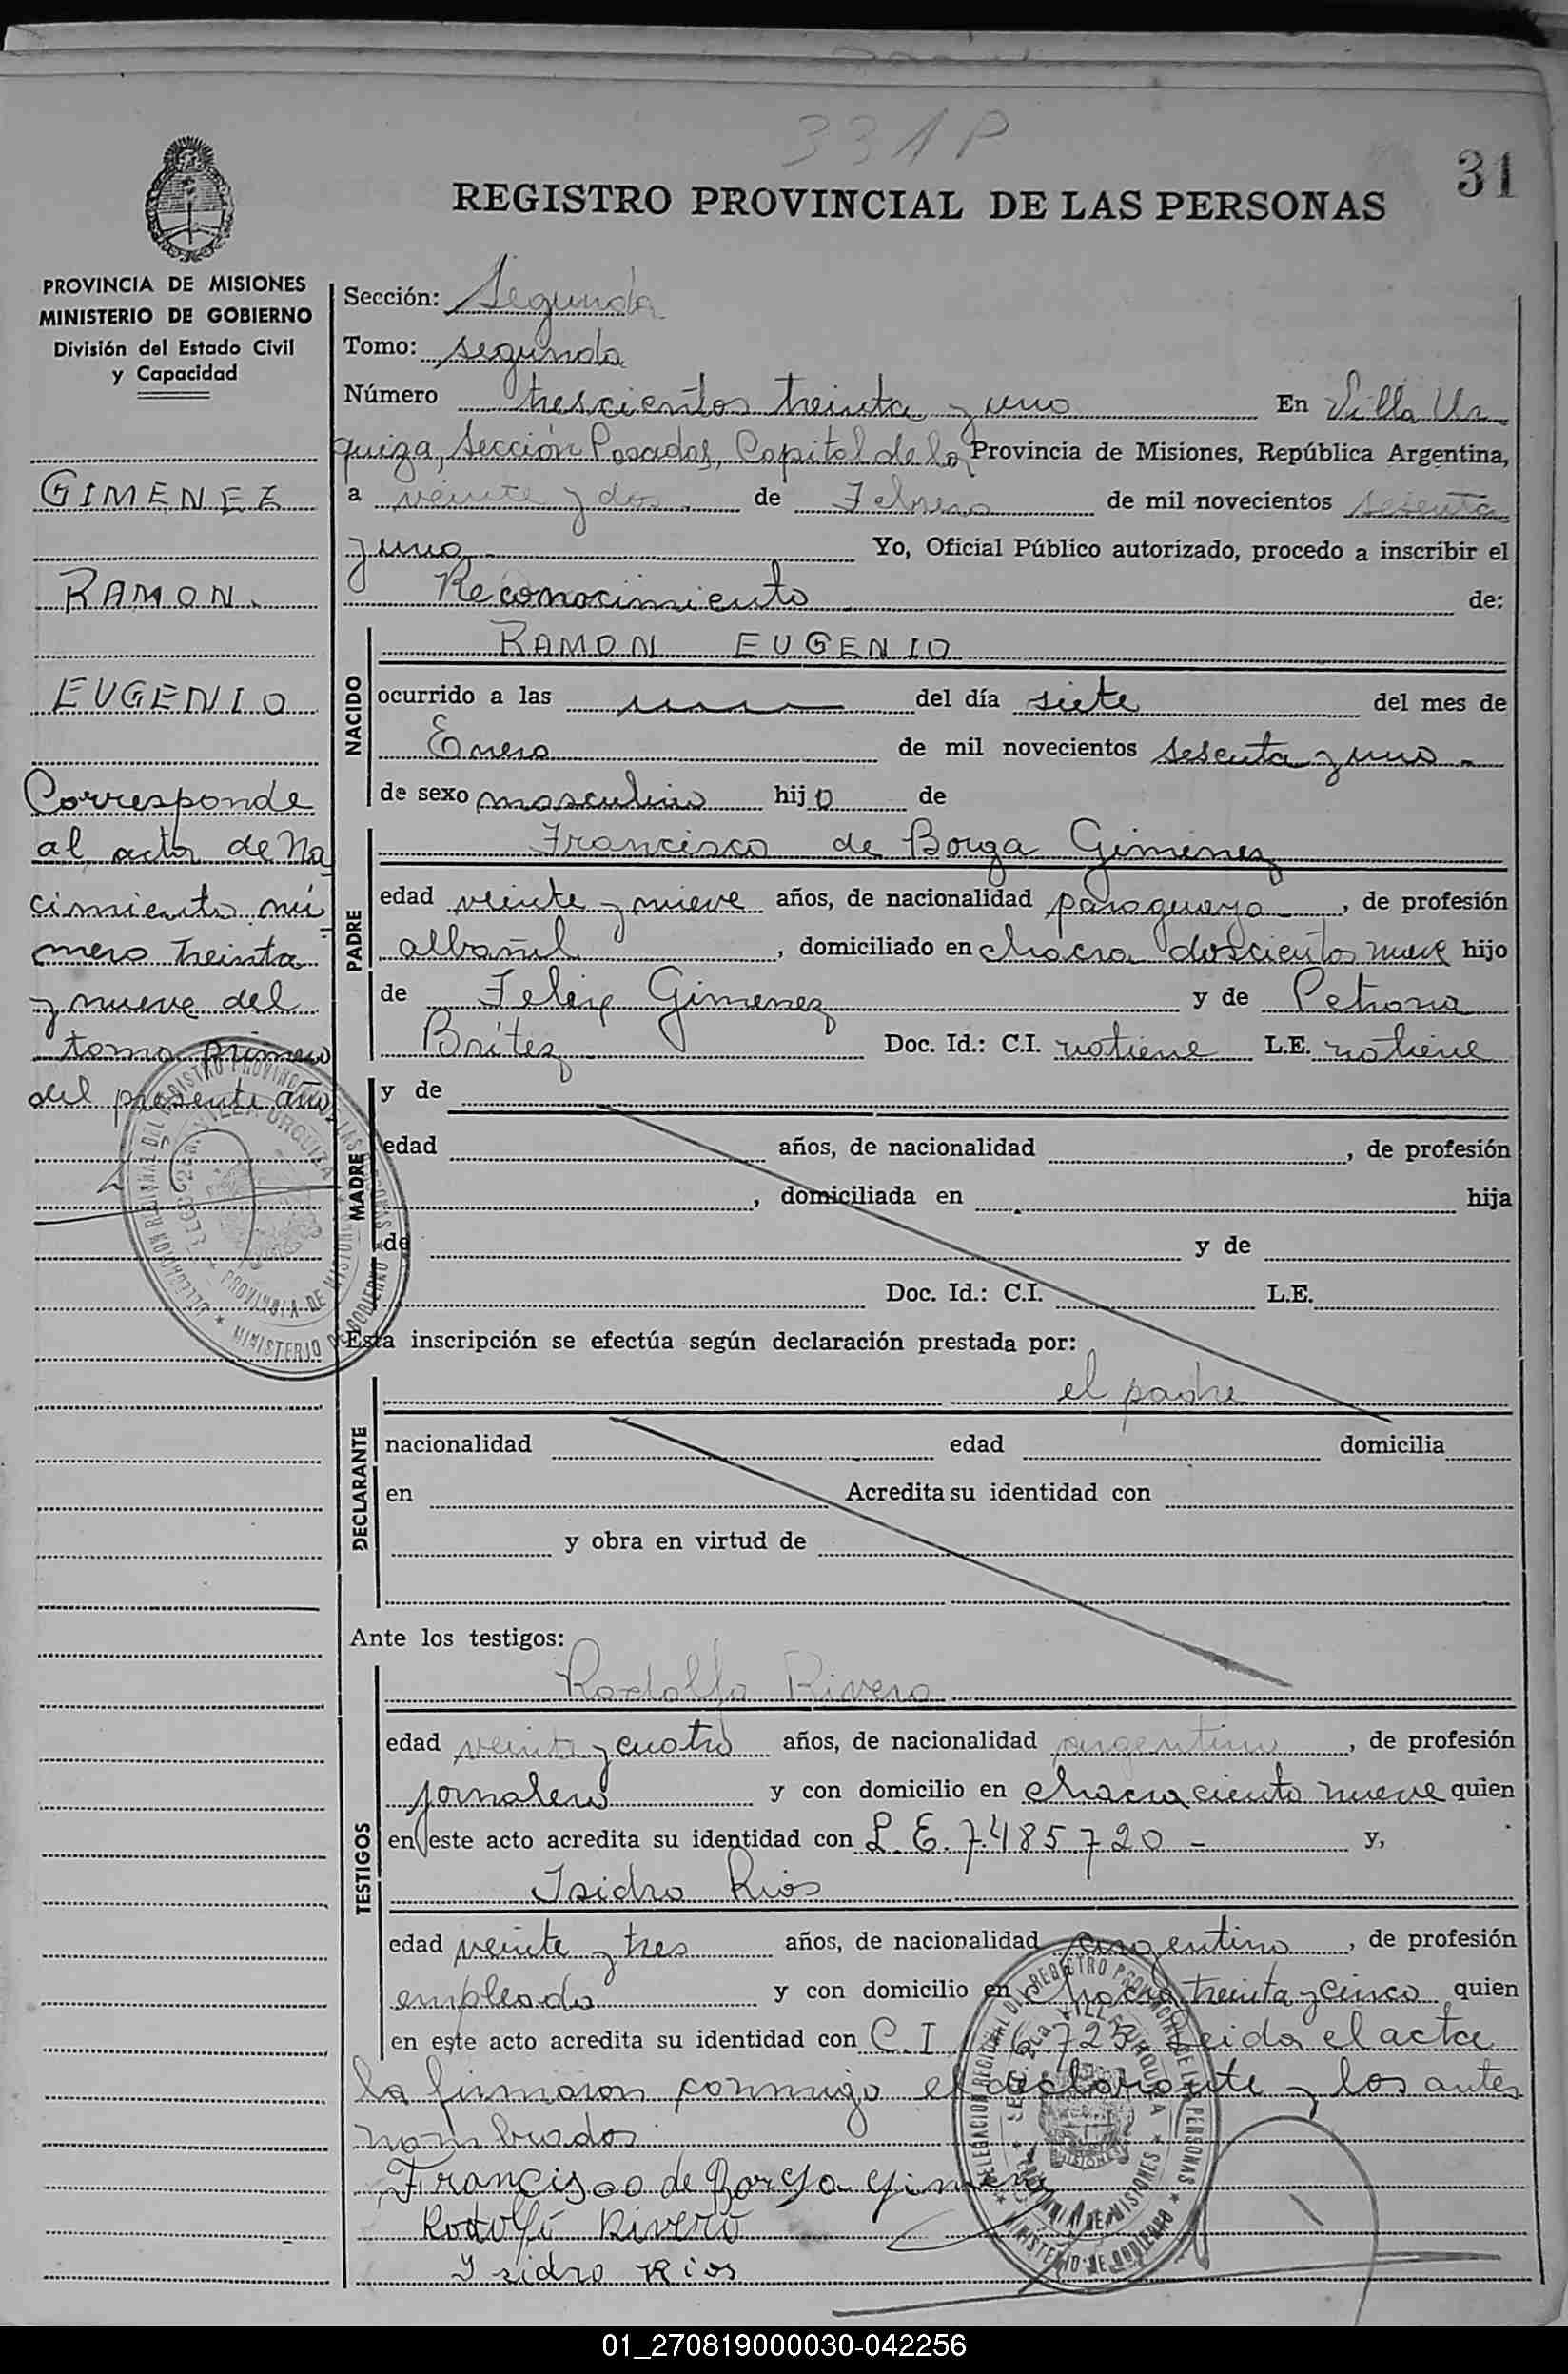 331P
31
REGISTRO PROVINCIAL DE LAS PERSONAS
PROVINCIA DE MISIONES
MINISTERIO DE GOBIERNO
División del Estado Civil
y Capacidad
GIMENEZ
RAMON
EUGENIO
Corresponde
al acta de Na
cimiento nú
mero treinta
y nueve del
tomo primero
del presente año
Sección: Segunda
Tomo: segunda
Número trescientos treinta y uno En Villa Ur
quiza, Sección Posadas, Capital de la Provincia de Misiones, República Argentina,
a veinte y dos de Febrero de mil novecientos sesenta
y uno Yo, Oficial Público autorizado, procedo a inscribir el
Reconocimiento de:
NACIDO
RAMON EUGENIO
ocurrido a las del día siete del mes de
Enero de mil novecientos sesenta y uno
de sexo masculino hijo de
PADRE
Francisco de Borga Gimenez
edad veinte y nueve años, de nacionalidad paraguaya, de profesión
albañil, domiciliado en chacra doscientos nueve hijo
de Felix Gimenez y de Petrona
Britez Doc. Id.: C.I. no tiene L.E. no tiene
MADRE
y de
edad años, de nacionalidad , de profesión
, domiciliada en hija
de y de
Doc. Id.: C.I. L.E.
Esta inscripción se efectúa según declaración prestada por:
DECLARANTE
el padre
nacionalidad edad domicilia
en Acredita su identidad con
y obra en virtud de
Ante los testigos:
TESTIGOS
Rodolfo Rivero
edad veinte y cuatro años, de nacionalidad argentino, de profesión
jornalero y con domicilio en chacra ciento nueve quien
en este acto acredita su identidad con L.E. 7.485.720 - y,
Isidro Rios
edad veinte y tres años, de nacionalidad argentino, de profesión
empleado y con domicilio en chacra treinta y cinco quien
en este acto acredita su identidad con C.I. Leida el acta
la firmaron conmigo el declarante y los antes
nombrados
Francisco de Borja Gimenez
Rodolfo Rivero
Isidro Rios
01_270819000030-042256